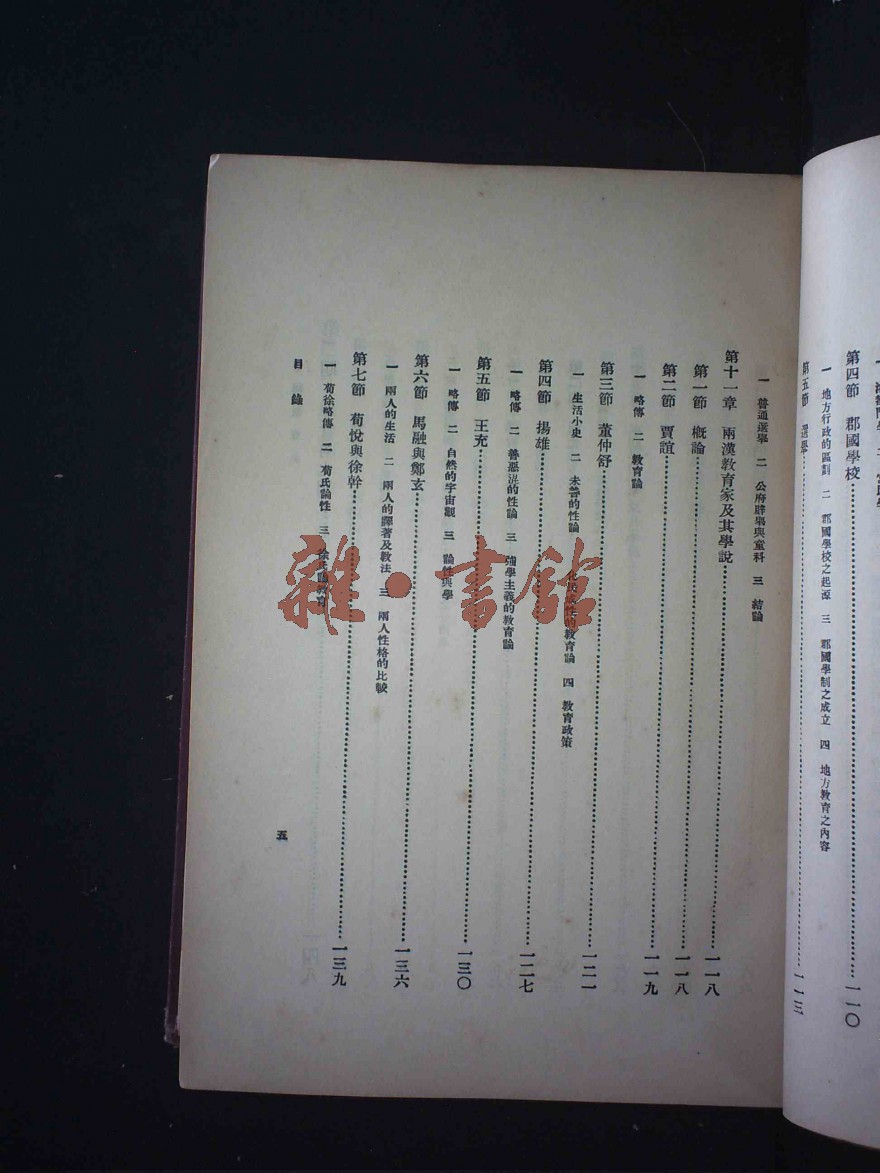 第四節 郡國學校……一一〇
一 地方行政的區劃 二 郡國學校之起源 三 郡國學制之成立 四 地方教育之內容
第五節 選舉……一一三
一 普通選舉 二 公府辟舉與童科 三 結論
第十一章 兩漢教育家及其學說……一一八
第一節 概論……一一八
第二節 賈誼……一一九
一 略傳 二 教育論
第三節 董仲舒……一二一
一 生活小史 二 未善的性論 化民成性的教育論 四 教育政策
第四節 揚雄……一二七
一 略傳 二 善惡混的性論 三 強學主義的教育論
第五節 王充……一三〇
一 略傳 二 自然的宇宙觀 三 論性與學
第六節 馬融與鄭玄……一三六
一 兩人的生活 二 兩人的譯著及教法 三 兩人性格的比較
第七節 荀悅與徐幹……一三九
一 荀徐略傳 二 荀氏論性 三 徐氏論教育
目錄
五
雜·書館